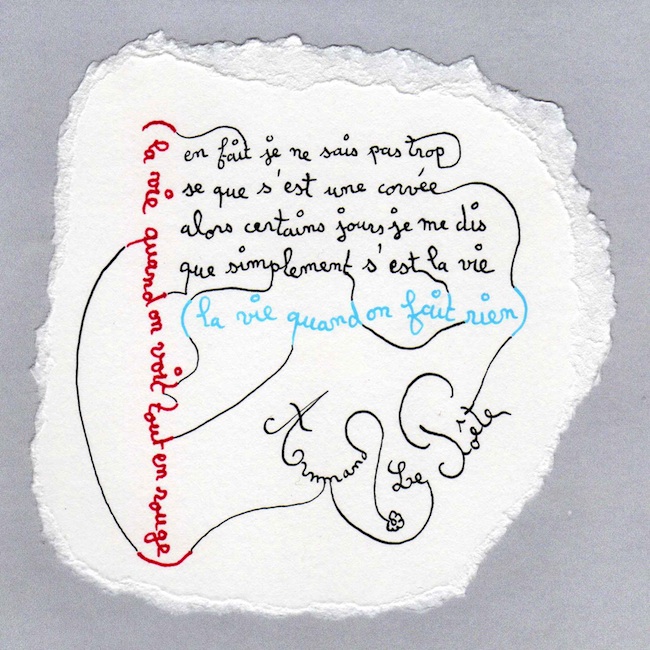 (la vie quand on voit tout en rouge)
en fait je ne sais pas trop
se que s'est une corvée
alors certains jours je me dis
que simplement s'est la vie
(la vie quand on fait rien)
Armand Le Poète